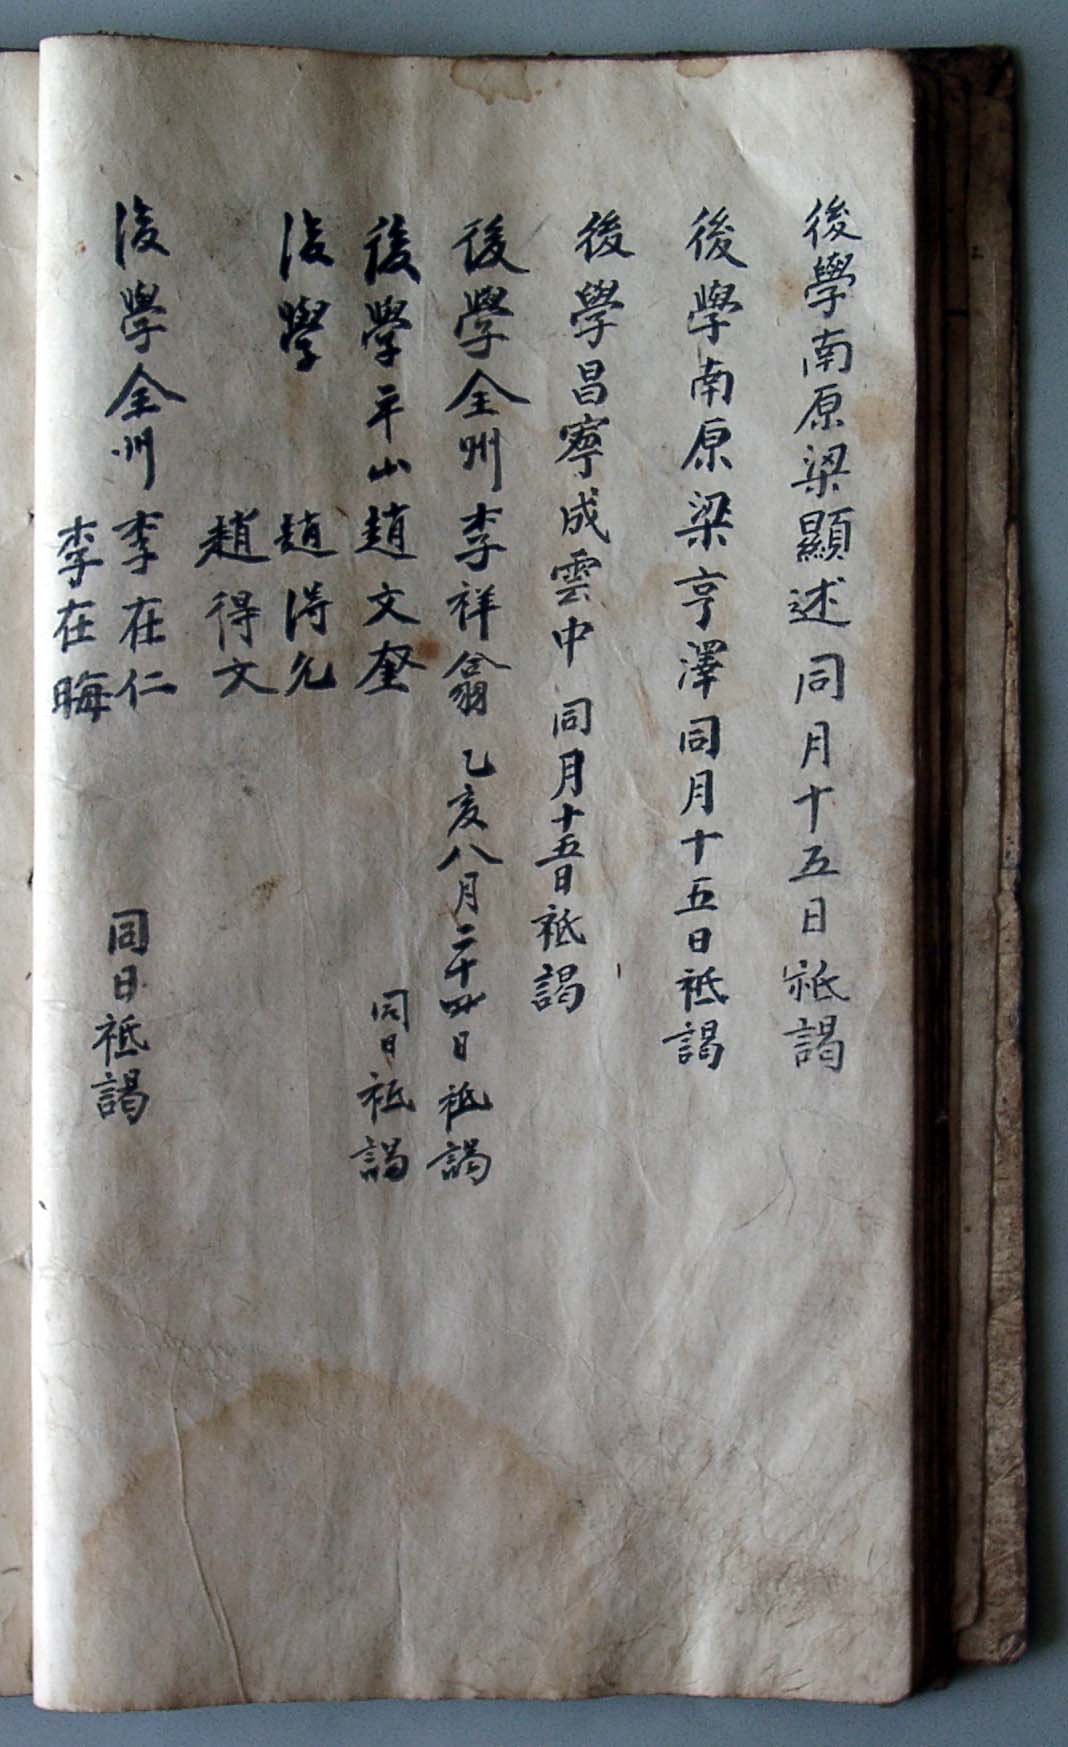 後學南原梁顯述 同月十五日祗謁
後學南原梁亨澤同月十五日祗謁
後學昌寧成雲中 同月十五日祗謁
後學全州李祥翕 乙亥八月二十四日 祗謁
後學平山趙文奎 同日祗謁
後學 趙得允
趙得文
後學全州 李在仁 同日祗謁
李在晦